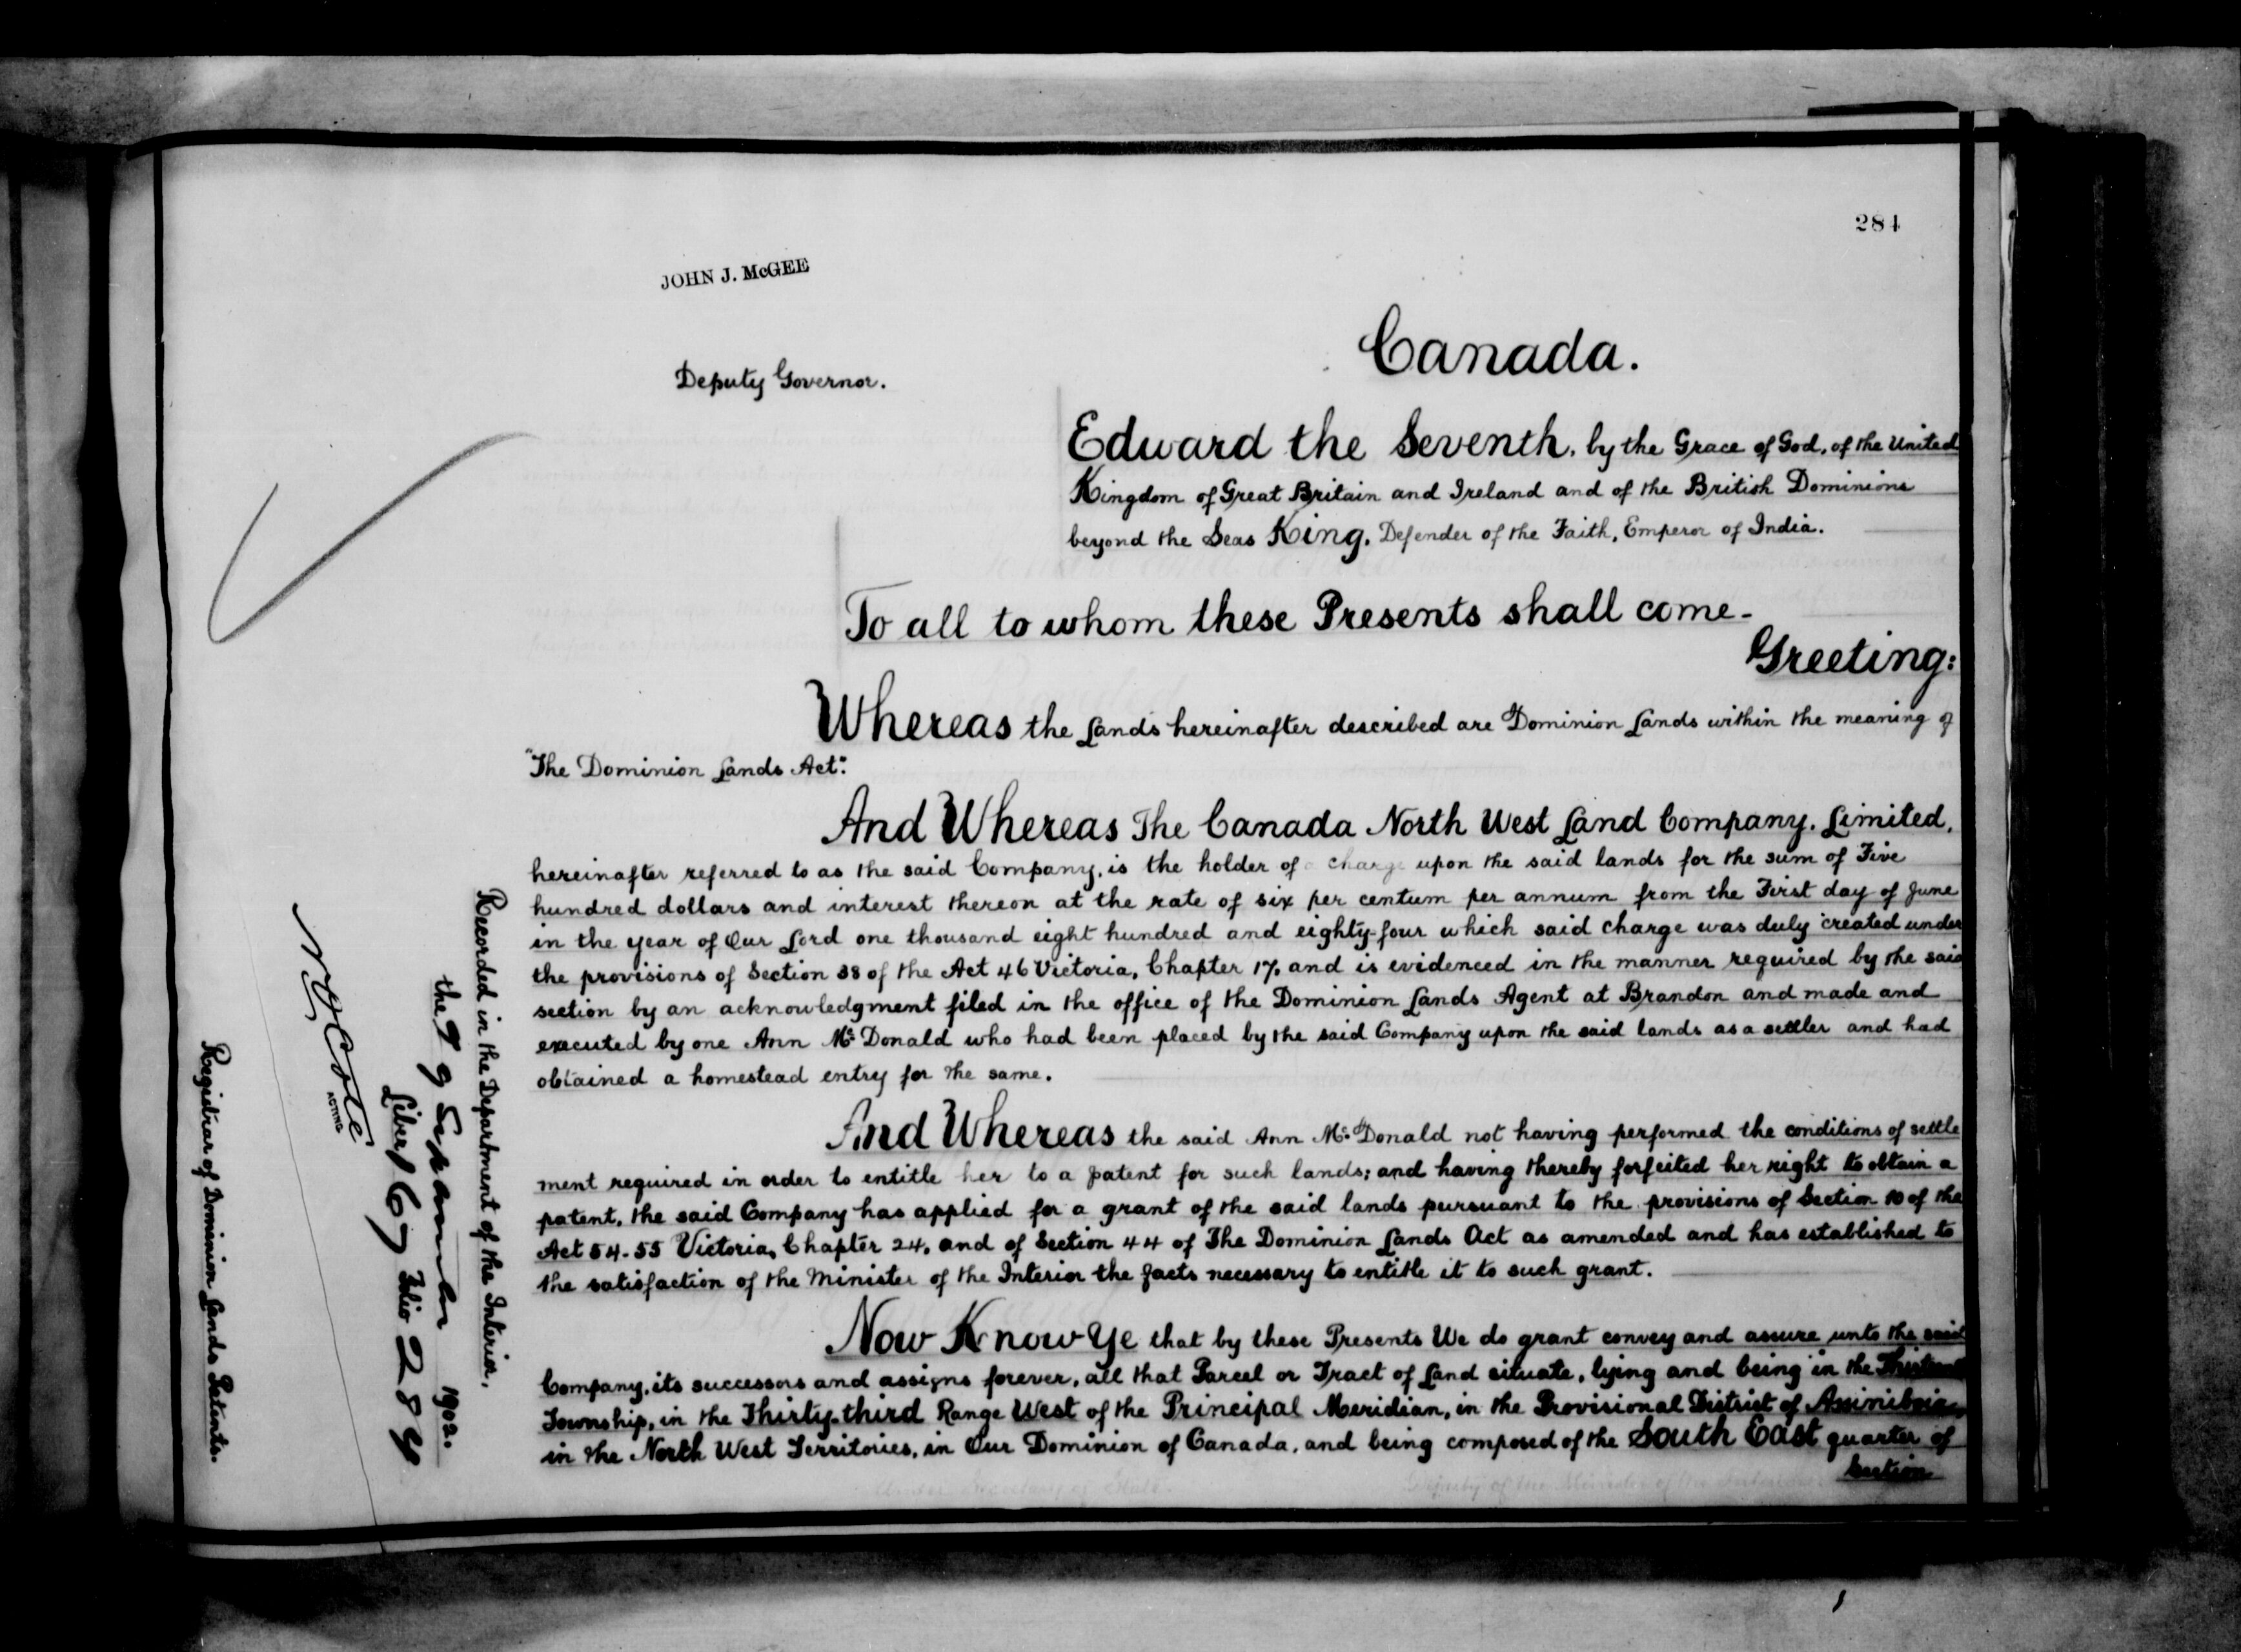 284
JOHN J. McGEE
Deputy Governor.
Canada.
Edward the Seventh, by the Grace of God, of the United
Kingdom of Great Britain and Ireland and of the British Dominions
beyond the Seas King, Defender of the Faith, Emperor of India.
To all to whom these Presents shall come-
Greeting:
Whereas the Lands hereinafter described are Dominion Lands within the meaning of
"The Dominion Lands Act".
And Whereas The Canada North West Land Company, Limited,
hereinafter referred to as the said Company, is the holder of a charge upon the said lands for the sum of Five
hundred dollars and interest thereon at the rate of six per centum per annum from the First day of June
in the year of Our Lord one thousand eight hundred and eighty-four which said charge was duly created under
the provisions of Section 38 of the Act 46 Victoria, Chapter 17, and is evidenced in the manner required by the said
section by an acknowledgment filed in the office of the Dominion Lands Agent at Brandon and made and
executed by one Ann Mc Donald who had been placed by the said Company upon the said lands as a settler and had
obtained a homestead entry for the same.
And Whereas the said Ann Mc Donald not having performed the conditions of settle
ment required in order to entitle her to a patent for such lands; and having thereby forfeited her right to obtain a
patent, the said Company has applied for a grant of the said lands pursuant to the provisions of Section 10 of the
Act 54-55 Victoria, Chapter 24, and of Section 44 of The Dominion Lands Act as amended and has established to
the satisfaction of the Minister of the Interior the facts necessary to entitle it to such grant.
Now Know Ye that by these Presents We do grant convey and assure unto the said
Company, its successors and assigns forever, all that Parcel or Tract of Land situate, lying and being in the
Township, in the Thirty-third Range West of the Principal Meridian, in the Provisional District of Assiniboia,
in the North West Territories, in Our Dominion of Canada, and being composed of the South East quarter of
Section
Recorded in the Department of the Interior,
the 9 September 1902.
Liber 67 Folio 284
N O Cote
ACTING
Registrar of Dominion Lands Patents.